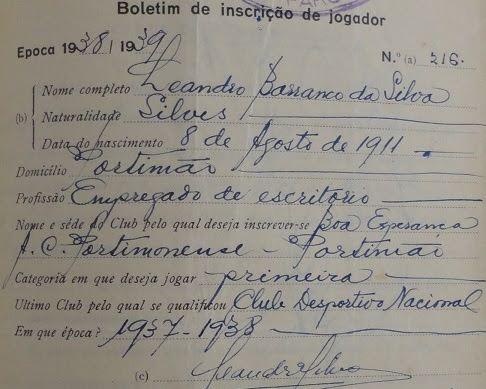 FARO
Boletim de inscrição de jogador
Epoca 1938 / 1939 N.º (a) 216.
Nome completo Leandro Barranco da Silva
(b) Naturalidade Silves
Data do nascimento 8 de Agosto de 1911
Domicílio Portimão
Profissão Empregado de escritorio
Nome e séde do Club pelo qual deseja inscrever-se Boa Esperança
A. C. Portimonense - Portimão
Categoria em que deseja jogar primeira
Ultimo Club pelo qual se qualificou Club Desportivo Nacional
Em que época? 1937-1938
(c) Leandro Silva